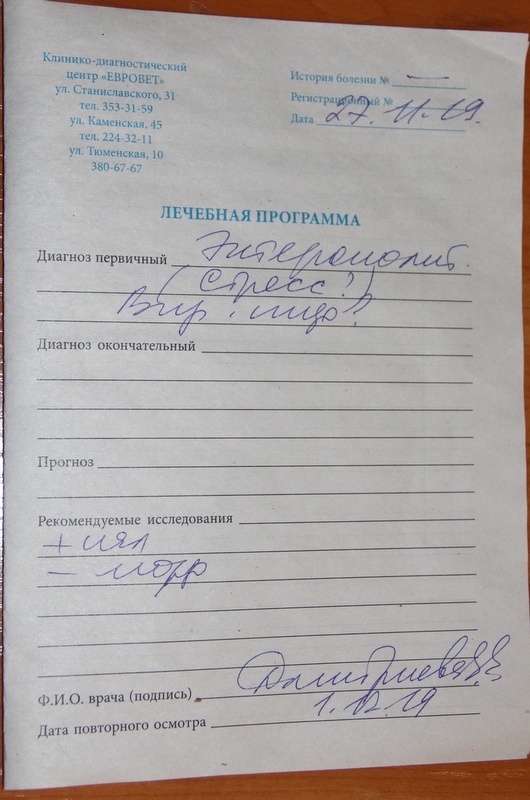 Клинико-диагностический
центр «ЕВРОВЕТ»
ул. Станиславского, 31
тел. 353-31-59
ул. Каменская, 45
тел. 224-32-11
ул. Тюменская, 10
380-67-67
История болезни № —
Регистрационный №
Дата 27.11.19.
ЛЕЧЕБНАЯ ПРОГРАММА
Диагноз первичный Энтероколит.
(стресс?)
Вир.
Диагноз окончательный
Прогноз
Рекомендуемые исследования
+
—
Ф.И.О. врача (подпись) Дмитриева
Дата повторного осмотра 1.12.19